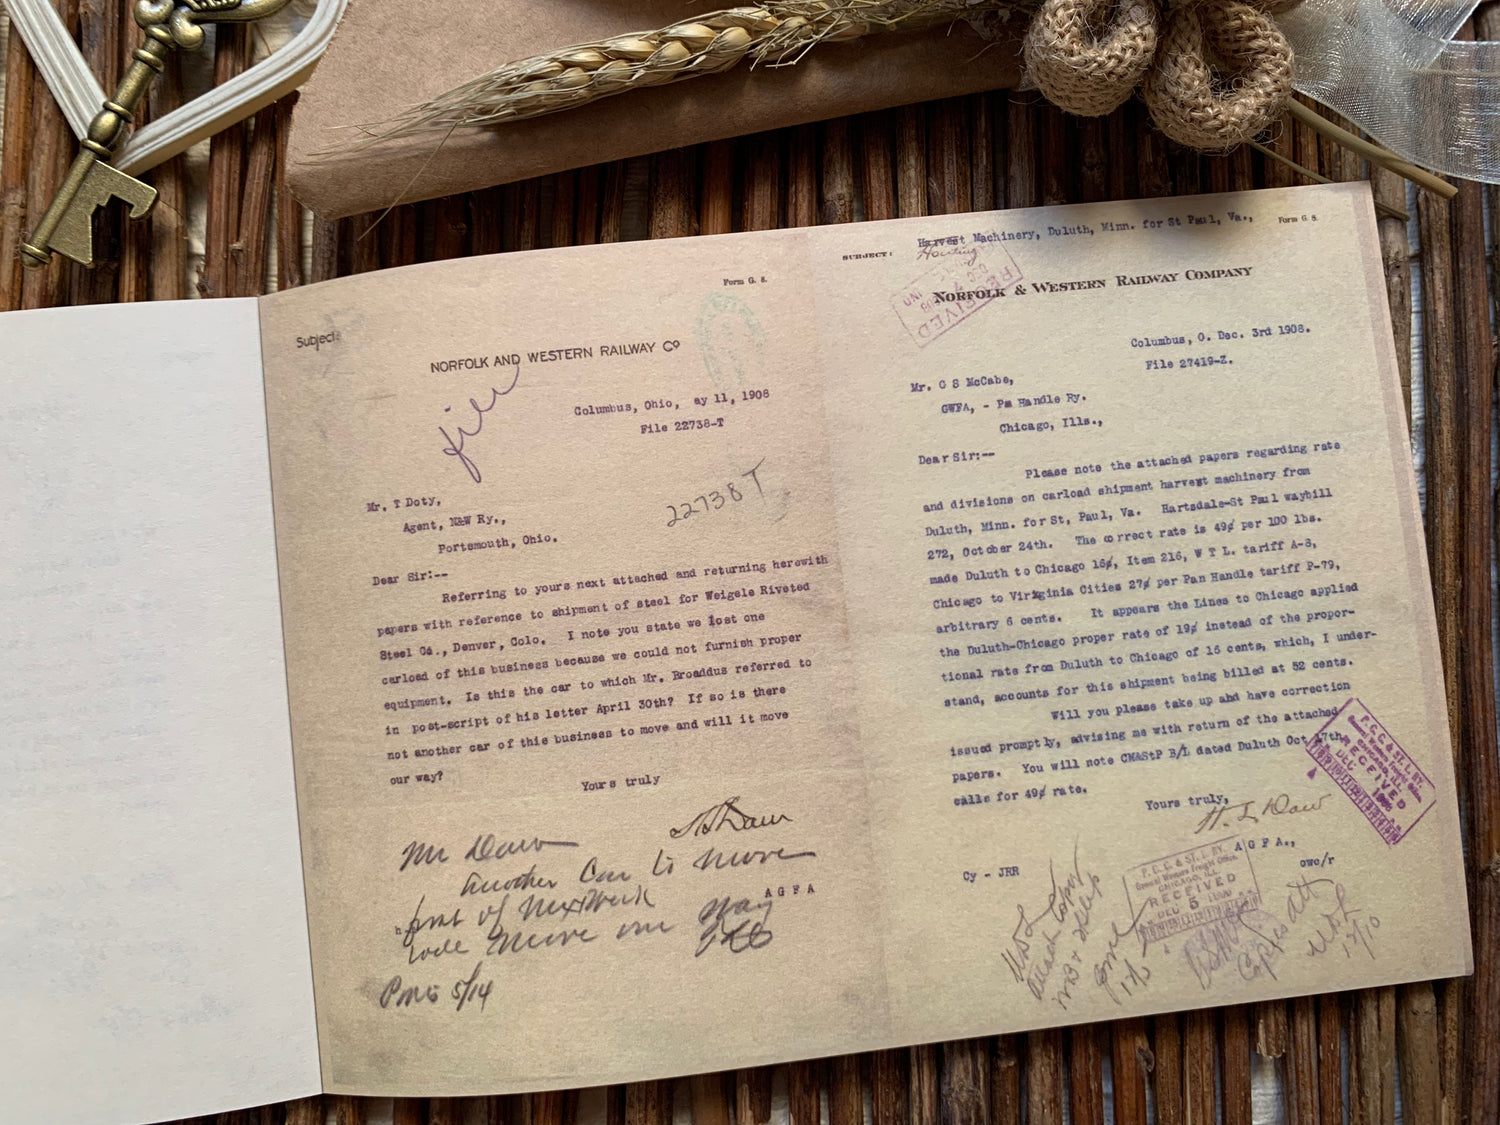 Form G. 8.
Subject:
NORFOLK AND WESTERN RAILWAY Co
file
Columbus, Ohio, ay 11, 1908
File 22738-T
22738 T
Mr. T Doty,
Agent, N&W Ry.,
Portsmouth, Ohio.
Dear Sir:--
Referring to yours next attached and returning herewith
papers with reference to shipment of steel for Weigele Riveted
Steel Co., Denver, Colo. I note you state we lost one
carload of this business because we could not furnish proper
equipment. Is this the car to which Mr. Broaddus referred to
in post-script of his letter April 30th? If so is there
not another car of this business to move and will it move
our way?
Yours truly
A G F A
Mr Daw
another Car to move
first of Next Week
will move our way
5/14
Harvest Machinery, Duluth, Minn. for St Paul, Va.,
Form G. 8.
SUBJECT:
RECEIVED
NORFOLK & WESTERN RAILWAY COMPANY
Columbus, O. Dec. 3rd 1908.
File 27419-Z.
Mr. G S McCabe,
GWFA, - Pan Handle Ry.
Chicago, Ills.,
Dear Sir:--
Please note the attached papers regarding rate
and divisions on carload shipment harvest machinery from
Duluth, Minn. for St, Paul, Va. Hartsdale-St Paul waybill
272, October 24th. The correct rate is 49¢ per 100 lbs.
made Duluth to Chicago 16¢, Item 216, W T L. tariff A-8,
Chicago to Virginia Cities 27¢ per Pan Handle tariff P-79,
arbitrary 6 cents. It appears the Lines to Chicago applied
the Duluth-Chicago proper rate of 19¢ instead of the propor-
tional rate from Duluth to Chicago of 16 cents, which, I under-
stand, accounts for this shipment being billed at 52 cents.
Will you please take up and have correction
issued promptly, advising me with return of the attached
papers. You will note CM&StP B/L dated Duluth Oct 17th
calls for 49¢ rate.
Yours truly,
H. L Daw
A G F A.,
Cy - JRR
owc/r
P. C. C. & ST. L. RY.
General Western Freight Office
CHICAGO, ILL.
RECEIVED
DEC
P. C. C. & ST. L. RY.
General Western Freight Office
CHICAGO, ILL.
RECEIVED
DEC 5
12/10